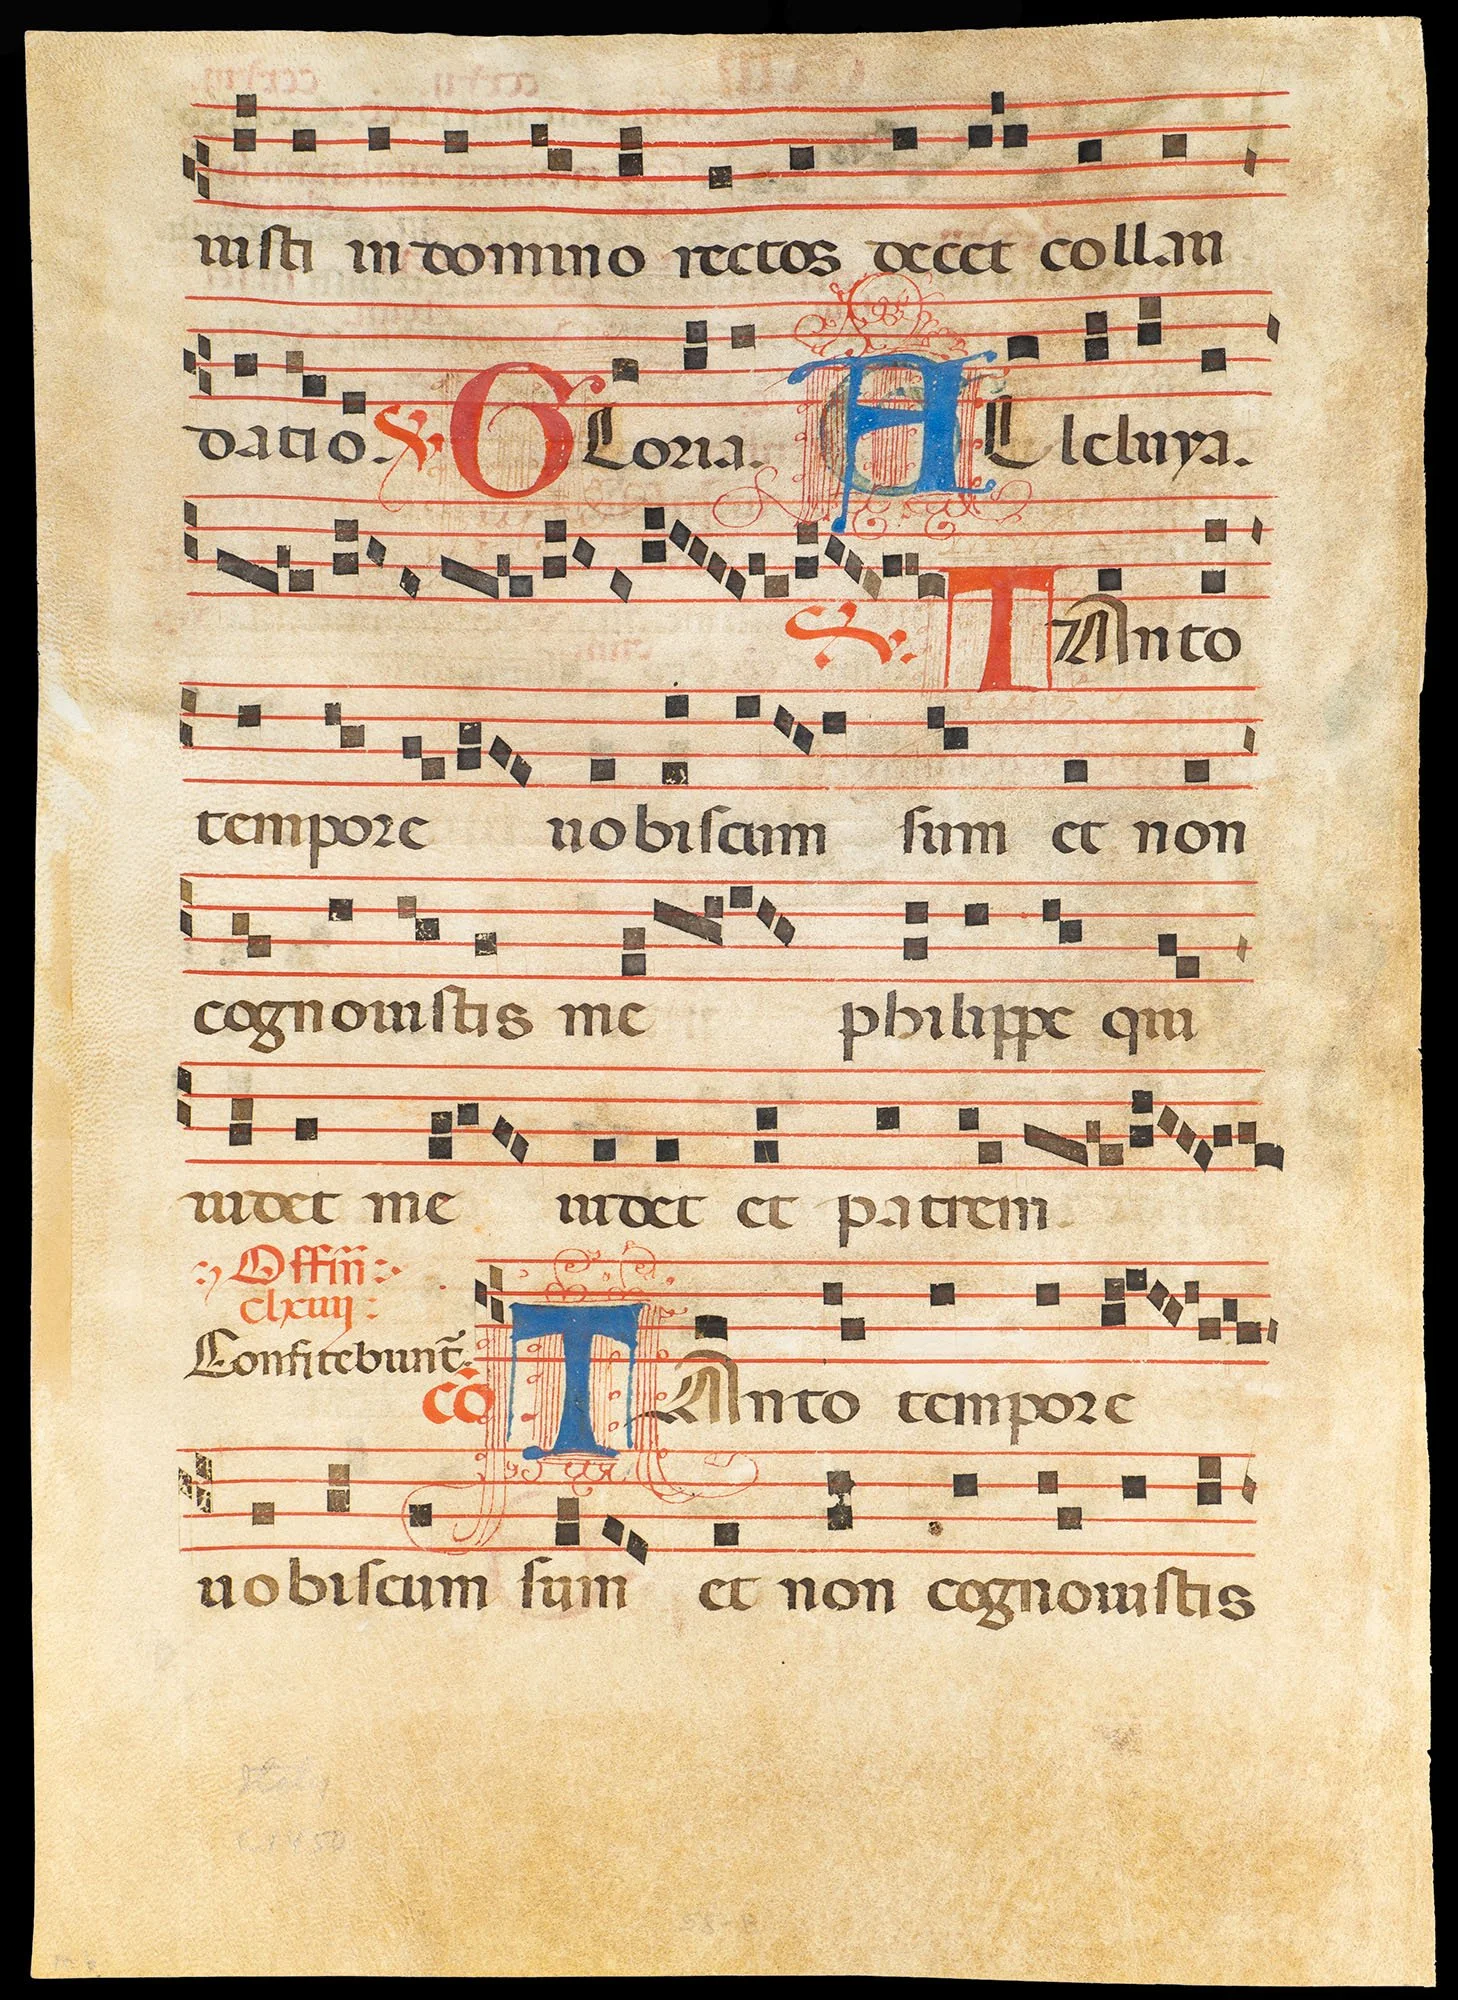 iusti in domino rectos decet collau
datio. ℣ GLoria. ALleluya.
℣. TAnto
tempore uobiscum sum et non
cognouistis me philippe qui
uidet me uidet et patrem
Offm̄
clxiiij
Confitebunt̃.
cō TAnto tempore
uobiscum sum et non cognouistis